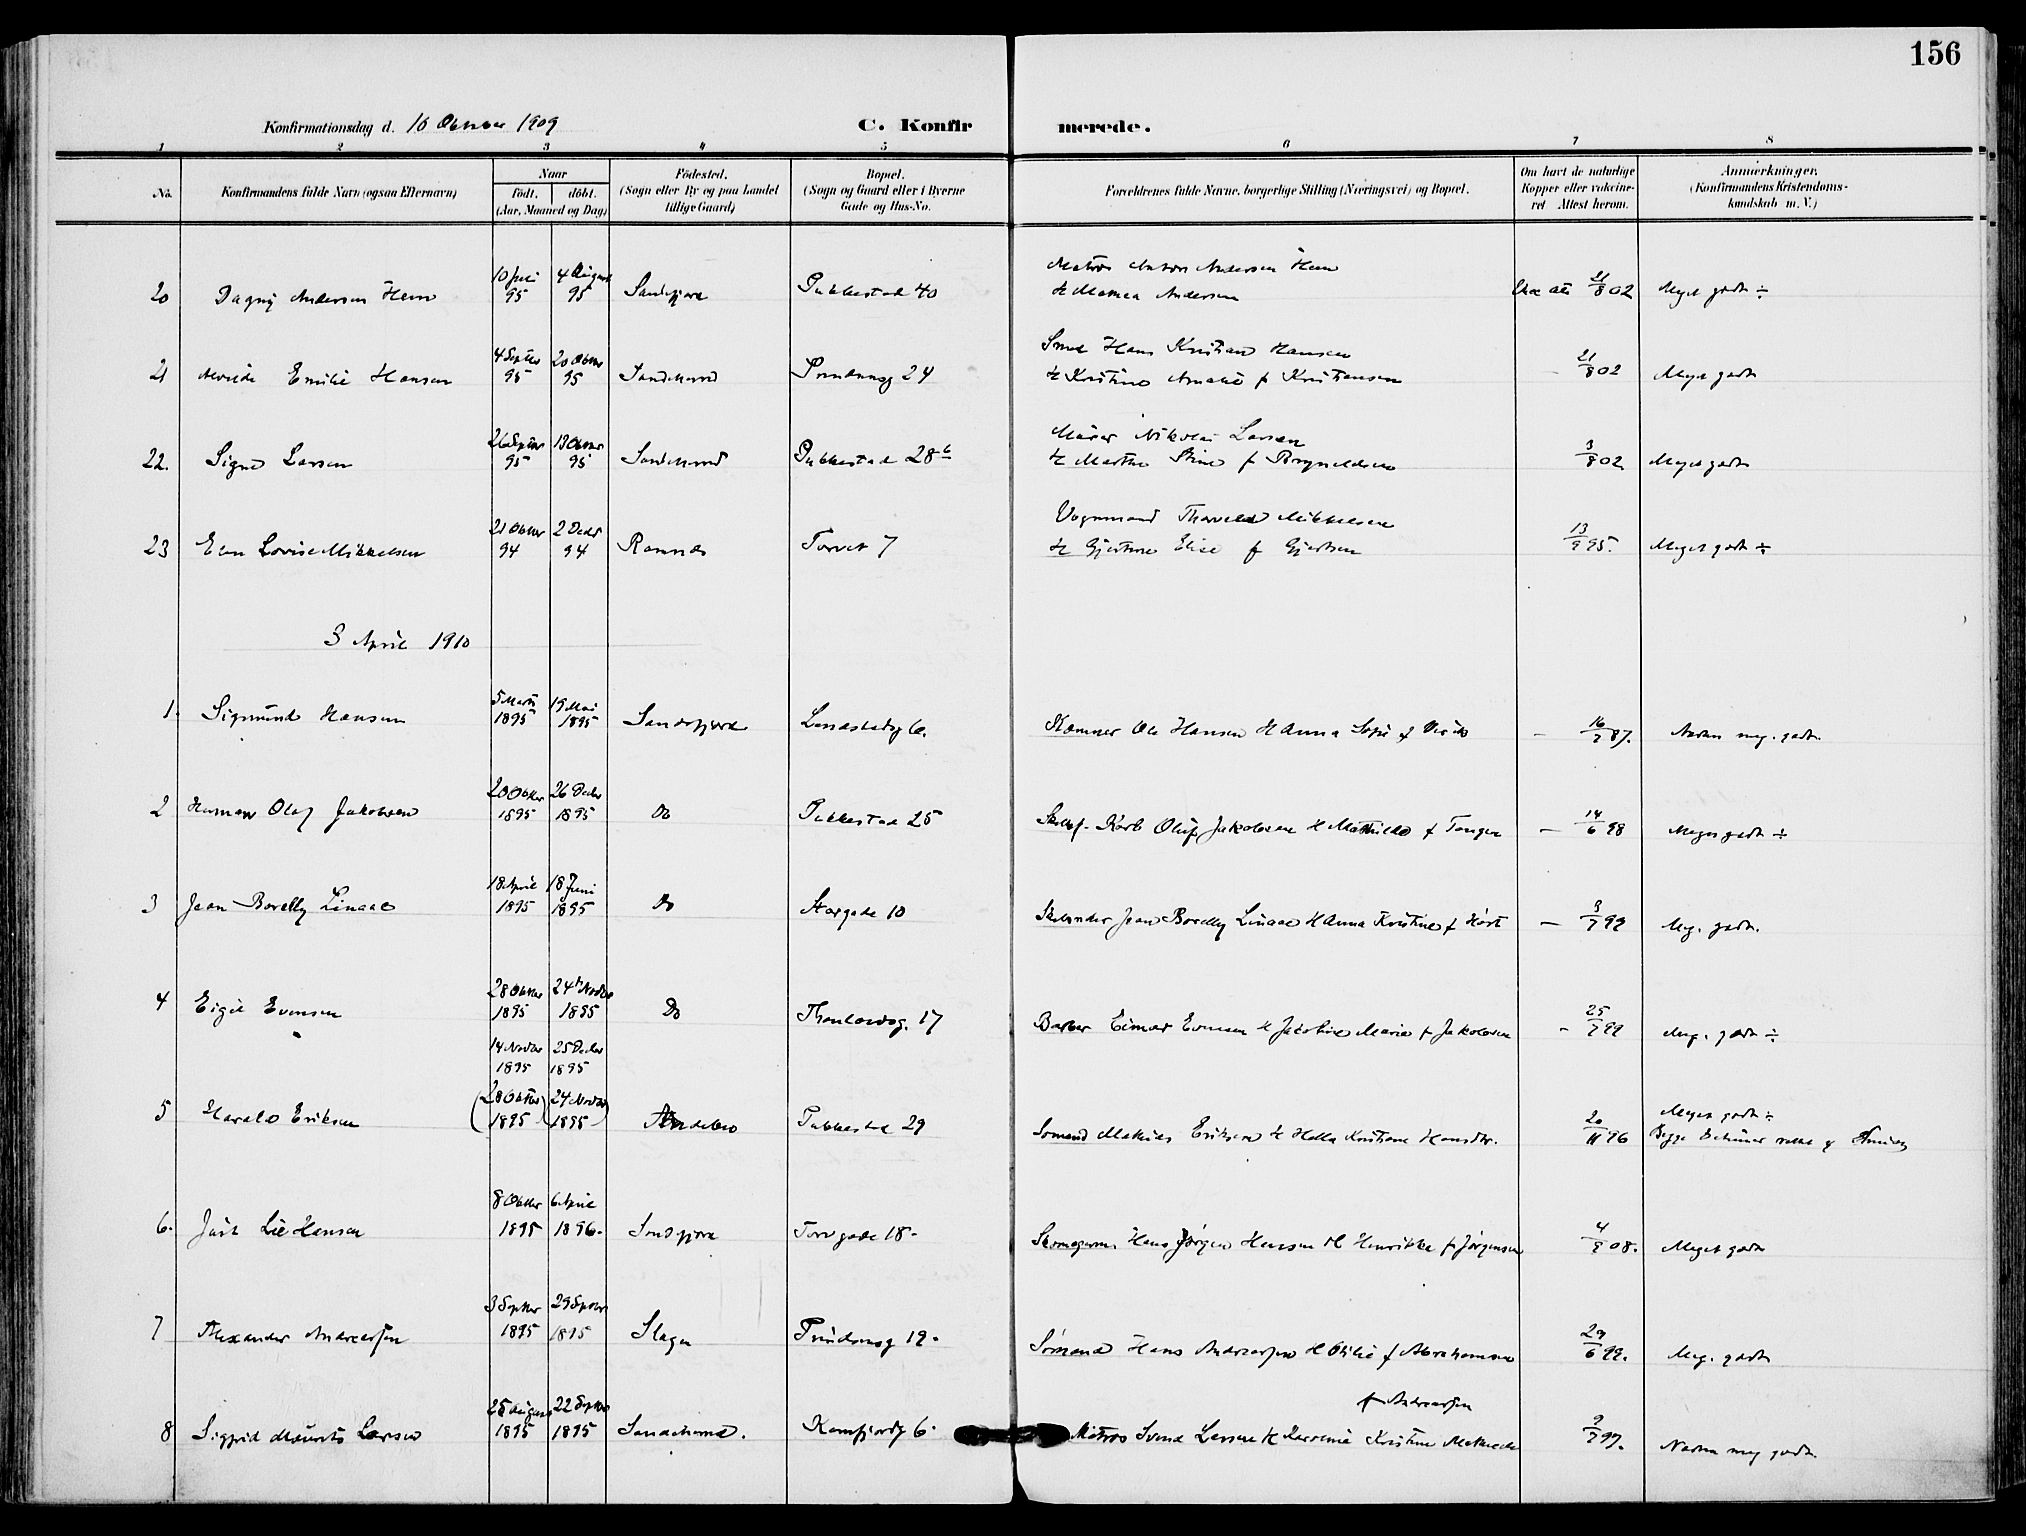 156
Konfirmationsdag d. 10 Oktober 1909
C. Konfirmerede.
1 2 3 4 5 6 7 8
No.
Konfirmandens fulde Navn (ogsaa Efternavn)
Naar
födt. döbt.
(Aar, Maaned og Dag)
Födested.
(Sogn eller By og paa Landet
tillige Gaard)
Bopæl.
(Sogn og Gaard eller i Byerne
Gade og Hus-No.
Forældrenes fulde Navne, borgerlige Stilling (Næringsvei) og Bopæl.
Om havt de naturlige
Kopper eller vakcine-
ret Attest herom.
Anmærkninger.
(Konfirmandens Kristendoms-
kundskab m. V.)
20 Dagny Andersen Hem 10 Juli 95 4 August 95 Sandefjord Pukkestad 40
Matros Anton Andersen Hem
& Mathea Andersen 21/8 02 Meget godt ÷
21 Emilie Hansen 4 Septbr 95 20 Oktbr 95 Sandeherred 24
Smed Hans Kristian Hansen
& Kristine Amalie f Kristiansen 21/8 02 Meget godt
22. Signe Larsen 26 Septbr 95 13 Oktbr 95 Sandeherred Pukkestad 28 b
Murer Nikolai Larsen
& Marthe Stine f Brynildsen 3/8 02 Meget godt
23 Lovise Mikkelsen 21 Oktbr 94 2 Decbr 94 Ramnes Torvet 7
Vognmand Thorvald Mikkelsen
& Gjertine Elise f Gjertsen 13/9 95. Meget godt ÷
3 April 1910
1. Sigmund Hansen 5 Marts 1895 19 Mai 1895 Sandefjord Landstadsg 6.
Kæmner Ole Hansen & Anna Sofie f - 16/ 87. Næsten meg. godt.
2 Herman Olaf Jakobsen 20 Oktbr 1895 26 Decbr 1895 Do Pukkestad 25
Karl Oluf Jakobsen & Mathilde f Tangen — 14/6 98 Meget godt ÷
3 Jean Borelly Linaae 18 April 1895 18 Juni 1895 Do Storgade 10
Jean Borelly Linaae & Anna Kristine f Høst — 3/7 99 Meg. godt.
4 Eigil Evensen 28 Oktbr 1895 24 Novbr 1895 Do Thaulowsg. 17
Barber Einar Evensen & Jakobine Marie f Jakobsen - 25/7 99 Meg. godt ÷
14 Novbr 1895 25 Decbr 1895
5 Harald Eriksen (28 Oktbr 1895) (24 Novbr 1895) Andebu Pukkestad 29
Sømand Mathias Eriksen & Helle Kristiane Hansdtr. 20/11 96 Meget godt ÷
Begge
6. Just Lie Hansen 8 Oktbr 1895 6 April 1896. Sandefjord Torvgade 18.
Skomagerm Hans Jørgen Hansen & Henrikke f Jørgensen 4/9 08. Meget godt
7 Alexander Andreassen 3 Septbr 1895 29 Septbr 1895 Slagen 19.
Sømand Hans Andreassen & Otilie f Abrahamsen 29/6 99. Meg. godt
8 Sigfrid Mauritz Larsen 25 August 1895 22 Septbr 1895 Sandeherred. Kamfjordg 6.
f Andreassen
Matros Svend Larsen & Karoline Kristine Mathilde 9/7 97. Næsten meg godt.